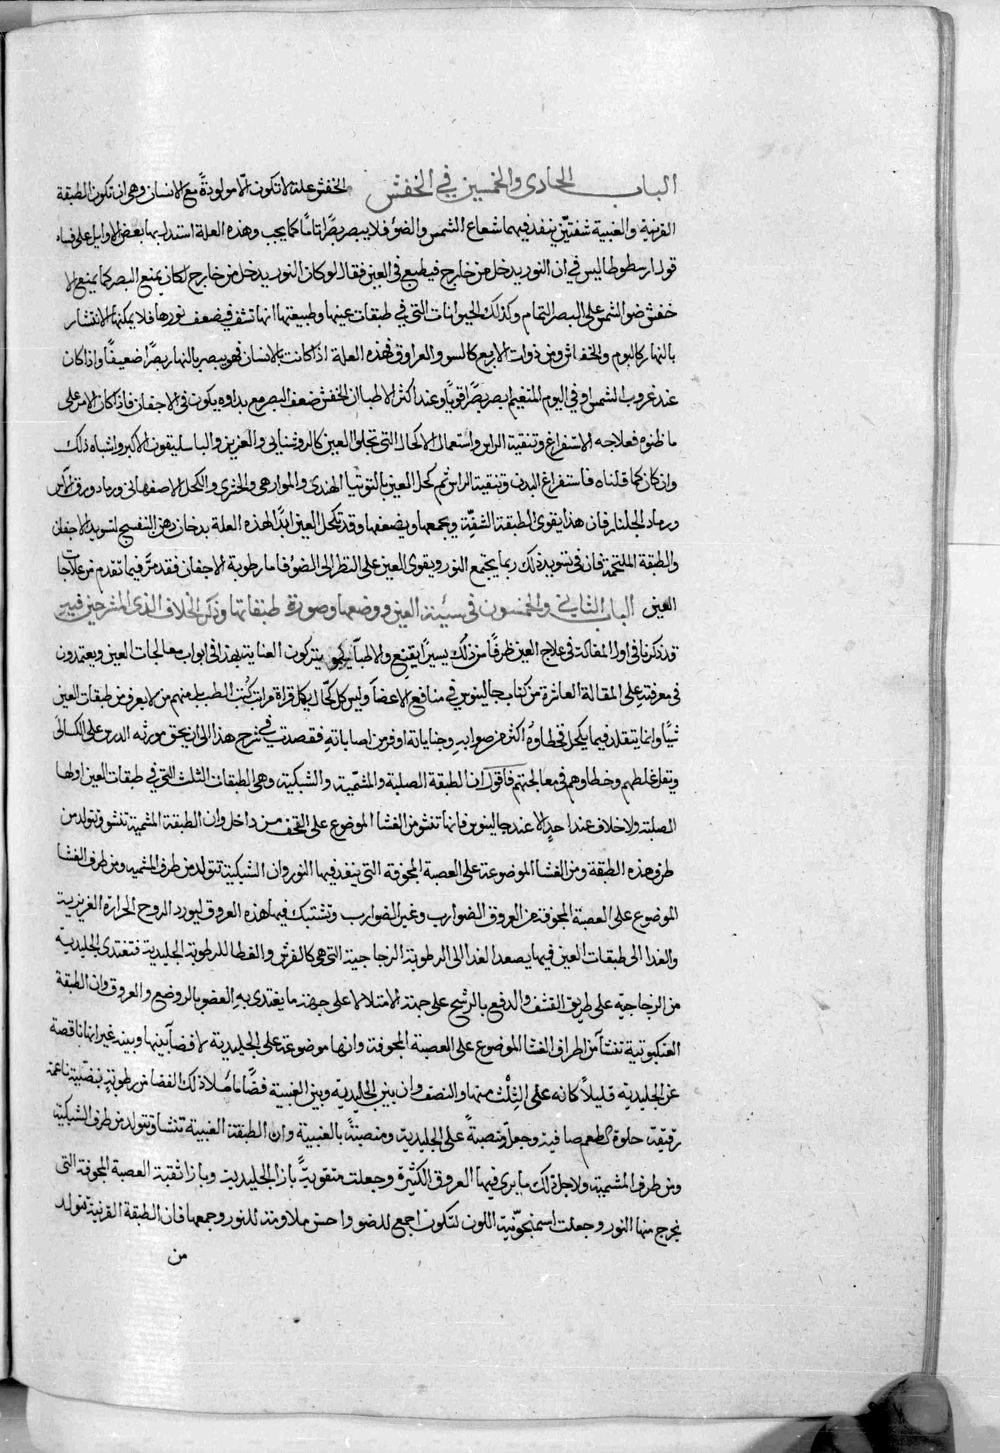 الباب الحادى والخمسين في الخفش الخفش علة لا تكون الا مولودةً مع الانسان وهى ان تكون الطبقة
القرنية والعنبية شفتيّن ينفد فيهما شعاع الشمس والضوُ فلا يبصر بصرًا تامًا كما يجب وهذه العلة استدل بها بعض الاوايل على فساد
قول ارسطوطاليس في ان النور يدخل من خارج فيطبع في العين فقال لو كان النور يدخل من خارج لكان يمنع البصر كما يمنع الا
خفش ضو الشمس على البصر التمام وكذلك الحيوانات التي في طبقات عينها وطبيعتها انها تشف فيضعف نورها فلا يمكنها الانتشار
بالنهار كالبوم والخفاش ومن ذوات الاربع كالسنور والعراوق فهذه العلة اذا كانت بالانسان فهو يبصر بالنهار بصرًا ضعيفًا واذا كان
عند غروب الشمس او في اليوم المتغيم يبصر بصرًا قويًا وعند اكثر الاطبا ان الخفش ضعف البصر مع نداوه يكون فى الاجفان فاذا كان الامر على
ما ظنوه فعلاجه الاستفراغ وتنقية الراس واستعمال الاكحال التى تجلوا العين كالروشنايى والعزيزى والباسليقون الاكبر واشباه ذلك
وان كان كما قلناه فاستفراغ البدن وتنقية الراس ثم كحل العين بالتوتيا الهندى والموارهى والخثرى والكحل الاصفهانى ورماد ورق الآس
ورماد الجلنار فان هذا يقوى الطبقة الشفيّة ويجمعها ويضعفها وقد تكحل العين ابدًا لهذه العلة بدخان دهن البنفسج لتسويد الاجفان
والطبقة الملتحمة فان فى تسويد ذلك ربما يجتمع النور ويقوى العين على النظر الى الضوُ فاما رطوبة الاجفان فقد مرّ فيما تقدم من علاجات
العين الباب الثانى والخمسون فى سيئة العين ووضعها وصورة طبقاتها وذكر الخلاف الذى المشرحين فيه
قد ذكرنا فى اول المقالة فى علاج العين ظرفًا من ذلك يسيرًا يقنع والاطبّا يتركون العناية بهذا فى ابواب معالجات العين ويعتمدون
فى معرفته على المقالة العاشرة من كتاب جالينوس في منافع الاعضا وليس كل كحّال يكمل قراة مراتب كتب الطب بل منهم من لا يعرف من طبقات العين
شيًا وانما يتقلد فيما يكحل فخطاوُه اكثر من صوابه وجناياته اوفر من اصاباته فقصدت في شرح هذا الى ان يحق مورثه الدرس على الكسالى
ويقل غلطهم وخطاوهم فى معالجتهم فاقول ان الطبقة الصلبة والمشيّمية والشبكية وهى الطبقات الثلث التى فى طبقات العين اولها
الصلبة ولا خلاف عند احدٍ الا عند جالينوس فانها تنشو من الغشا الموضوع على القحف من داخل وان الطبقة المشيمية تنشو وتتولد من
طرف هذه الطبقة ومن الغشا الموضوعة على العصبة المجوفة التى ينفد فيها النور وان الشبكية تتولد من طرف المشيميه ومن طرف الغشا
الموضوع على العصبة المجوفة من العروق الضوارب وغير الضوارب وتشتبك فيها هذه العروق ليورد الروح الحرارة الغريزية
والغدا الى طبقات العين فيها يصعد الغدا الى الرطوبة الزجاجية التى هى كالفرش والغطا للرطوبة الجليدية فتغتدى الجليدية
من الزجاجيه على طريق القشف والدفع بالرشح على جهة الامتلا لا على جهة ما يغتدى به العضو بالروضع والعروق وان الطبقة
العنكبوتية تنشآ من اطراف الغشا الموضوع على العصبة المجوفة وانها موضوعة على الجليدية لا فضآ بينها وبينه غير انها ناقصة
عن الجليدية قليلاً كانه على الثلث منها والنصف وان بين الجليديه وبين العنبية فضًا ماملا ذلك الفضا من رطوبة بيضيّة ناعمة
رقيقة حلوة الطعم صافية وجعلت منصبةً على الجليدية ومنصبّةً بالعنبية وان الطبقة العنبية تنشا وتتولد من طرف الشبكية
ومن طرف المشيمية ولاجل ذلك ما يرى فيها العروق الكثيرة وجعلت مثقوبةً بازا الجليدية وبازا ثقبة العصبة المجوفة التى
يخرج منها النور وجعلت اسمنجوّنية اللون لتكون اجمع للضو واحسن ملاومة للنور وجمعها فان الطبقة القرنية تتولد
من